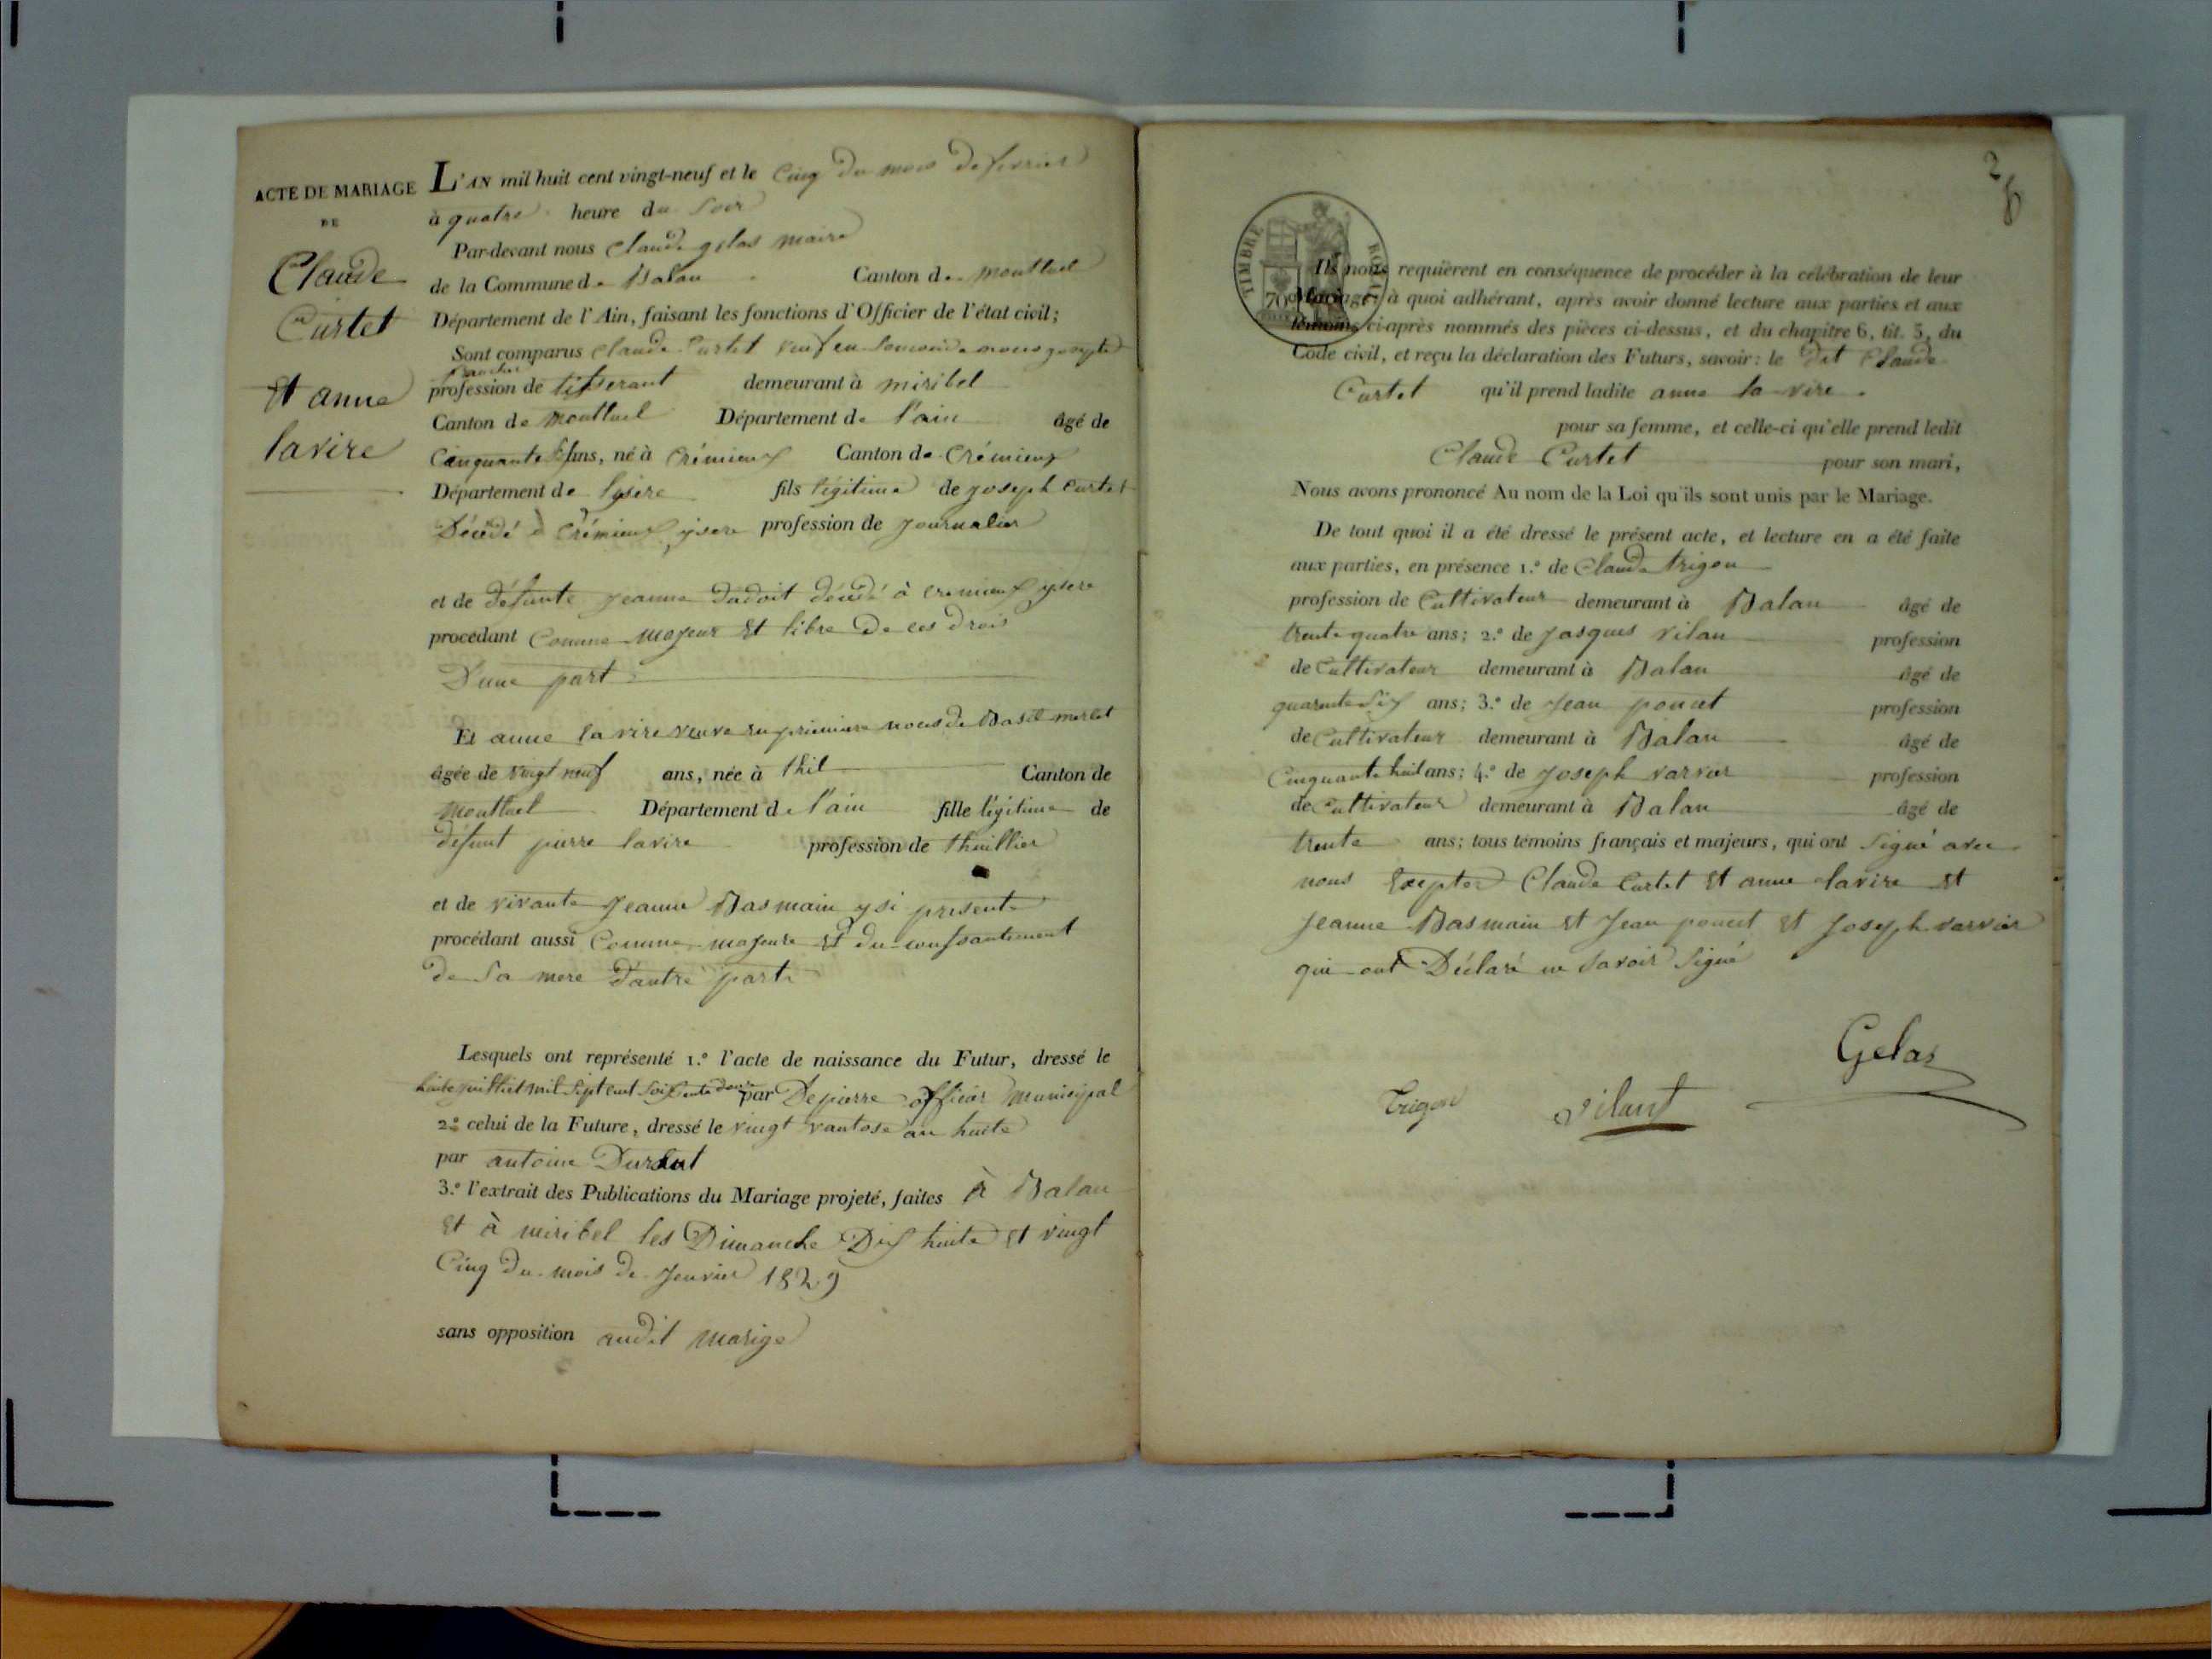 ACTE DE MARIAGE
DE
Claude
Curtet
Et anne
lavire
L'AN mil huit cent vingt-neuf et le Cinq du mois de fevrier
à quatre heure du Soir
Par-devant nous Claude gelas maire
de la Commune de Balan Canton de montluel
Département de l'Ain, faisant les fonctions d'Officier de l'état civil;
Sont comparus Claude Curtet veuf en Seconde
profession de tisserant demeurant à miribel
Canton de montluel Département de l'ain âgé de
Cinquante ans, né à Crémieux Canton de Crémieux
Département de lysere fils légitime de joseph Curtet
Décédé à Crémieux ysere profession de journalier
et de défunte jeanne dédé à cremieux ysere
procédant Comme majeur Et libre De ces drois
D'une part
Et anne la vire veuve en premiere noces de
âgée de vingt neuf ans, née à thil Canton de
montluel Département de l'ain fille légitime de
défunt pierre lavire profession de thuillier
et de vivante jeanne Basmain ysi presente
procédant aussi Comme majeure Et du consantement
de Sa mere d'autre part
Lesquels ont représenté 1.º l'acte de naissance du Futur, dressé le
huite juilliet mil Sept cent Soissente par Depierre officier municipal
2.º celui de la Future, dressé le vingt vantose an huite
par antoine
3.º l'extrait des Publications du Mariage projeté, faites à Balan
Et à miribel les Dimanche Dix huite Et vingt
Cinq du mois de Jenvier 1829
sans opposition audit marige
2
TIMBRE ROYAL
70
Ils nous requièrent en conséquence de procéder à la célébration de leur
Mariage; à quoi adhérant, après avoir donné lecture aux parties et aux
témoins ci-après nommés des pièces ci-dessus, et du chapitre 6, tit. 5, du
Code civil, et reçu la déclaration des Futurs, savoir: le dit Claude
Curtet qu'il prend ladite anne la vire
pour sa femme, et celle-ci qu'elle prend ledit
Claude Curtet pour son mari,
Nous avons prononcé Au nom de la Loi qu'ils sont unis par le Mariage.
De tout quoi il a été dressé le présent acte, et lecture en a été faite
aux parties, en présence 1.º de Claude trigon
profession de Cultivateur demeurant à Balan âgé de
trente quatre ans; 2.º de jasques vilan profession
de Cultivateur demeurant à Balan âgé de
quarente Six ans; 3.º de jean poncet profession
de Cultivateur demeurant à Balan âgé de
Cinquante huit ans; 4.º de joseph varvier profession
de Cultivateur demeurant à Balan âgé de
trente ans; tous témoins français et majeurs, qui ont Signé avec
nous Exepter Claude Curtet Et anne lavire Et
jeanne Basmain Et jean poncet Et joseph varvier
qui ont Déclaré ne Savoir Signé
Gelas
Trigon vilant